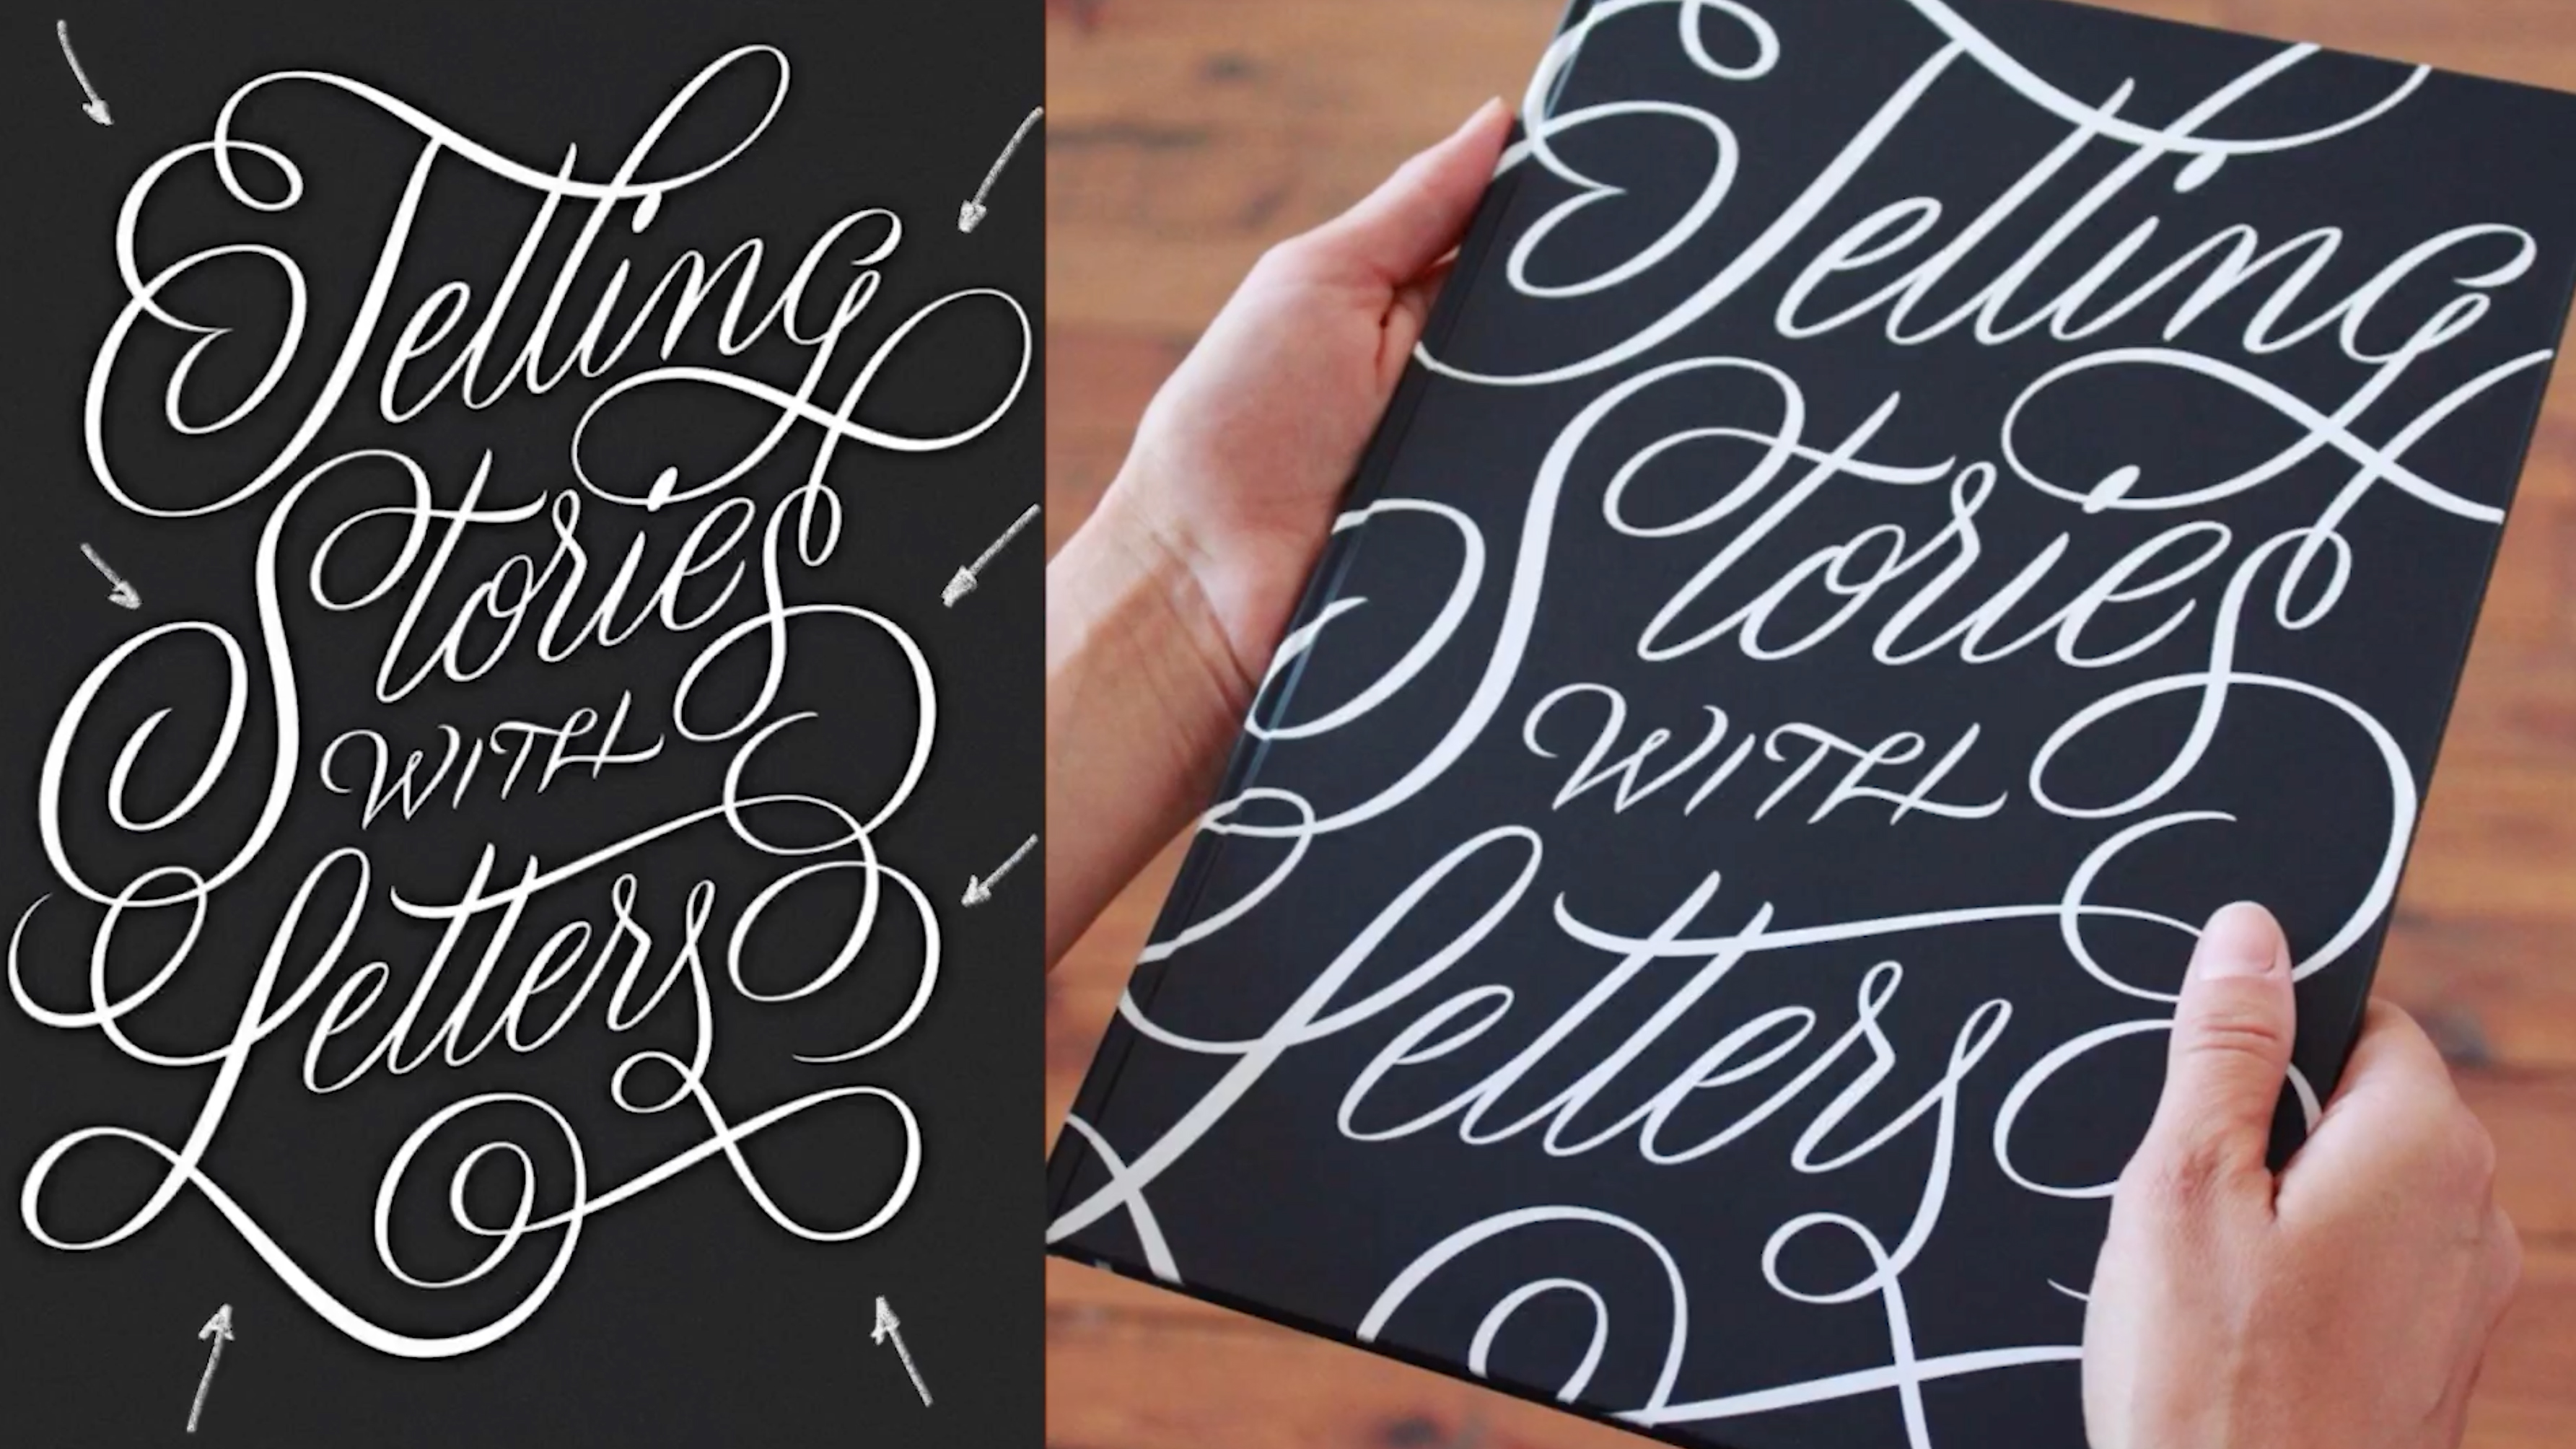 Telling
Stories
WITH
Letters
Telling
Stories
WITH
Letters